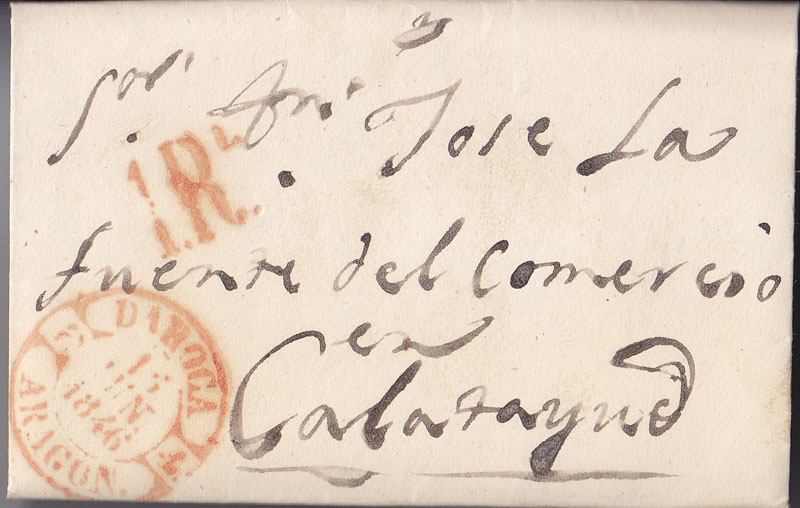 Sor. Dn. Jose La
1R.
fuente del Comercio
en
Calatayud
DAROCA
1846
ARAGON.